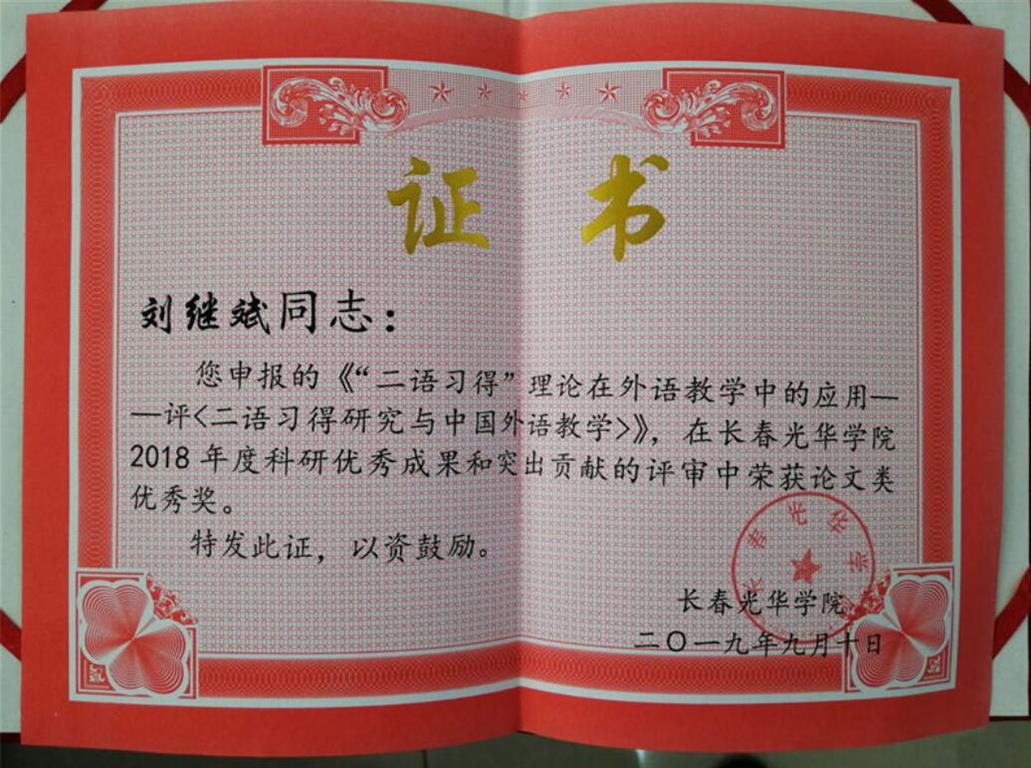 证 书
刘继斌同志：
您申报的《“二语习得”理论在外语教学中的应用—
—评<二语习得研究与中国外语教学>》，在长春光华学院
2018年度科研优秀成果和突出贡献的评审中荣获论文类
优秀奖。
特发此证，以资鼓励。
长春光华学院
长春光华学院
二〇一九年九月十日